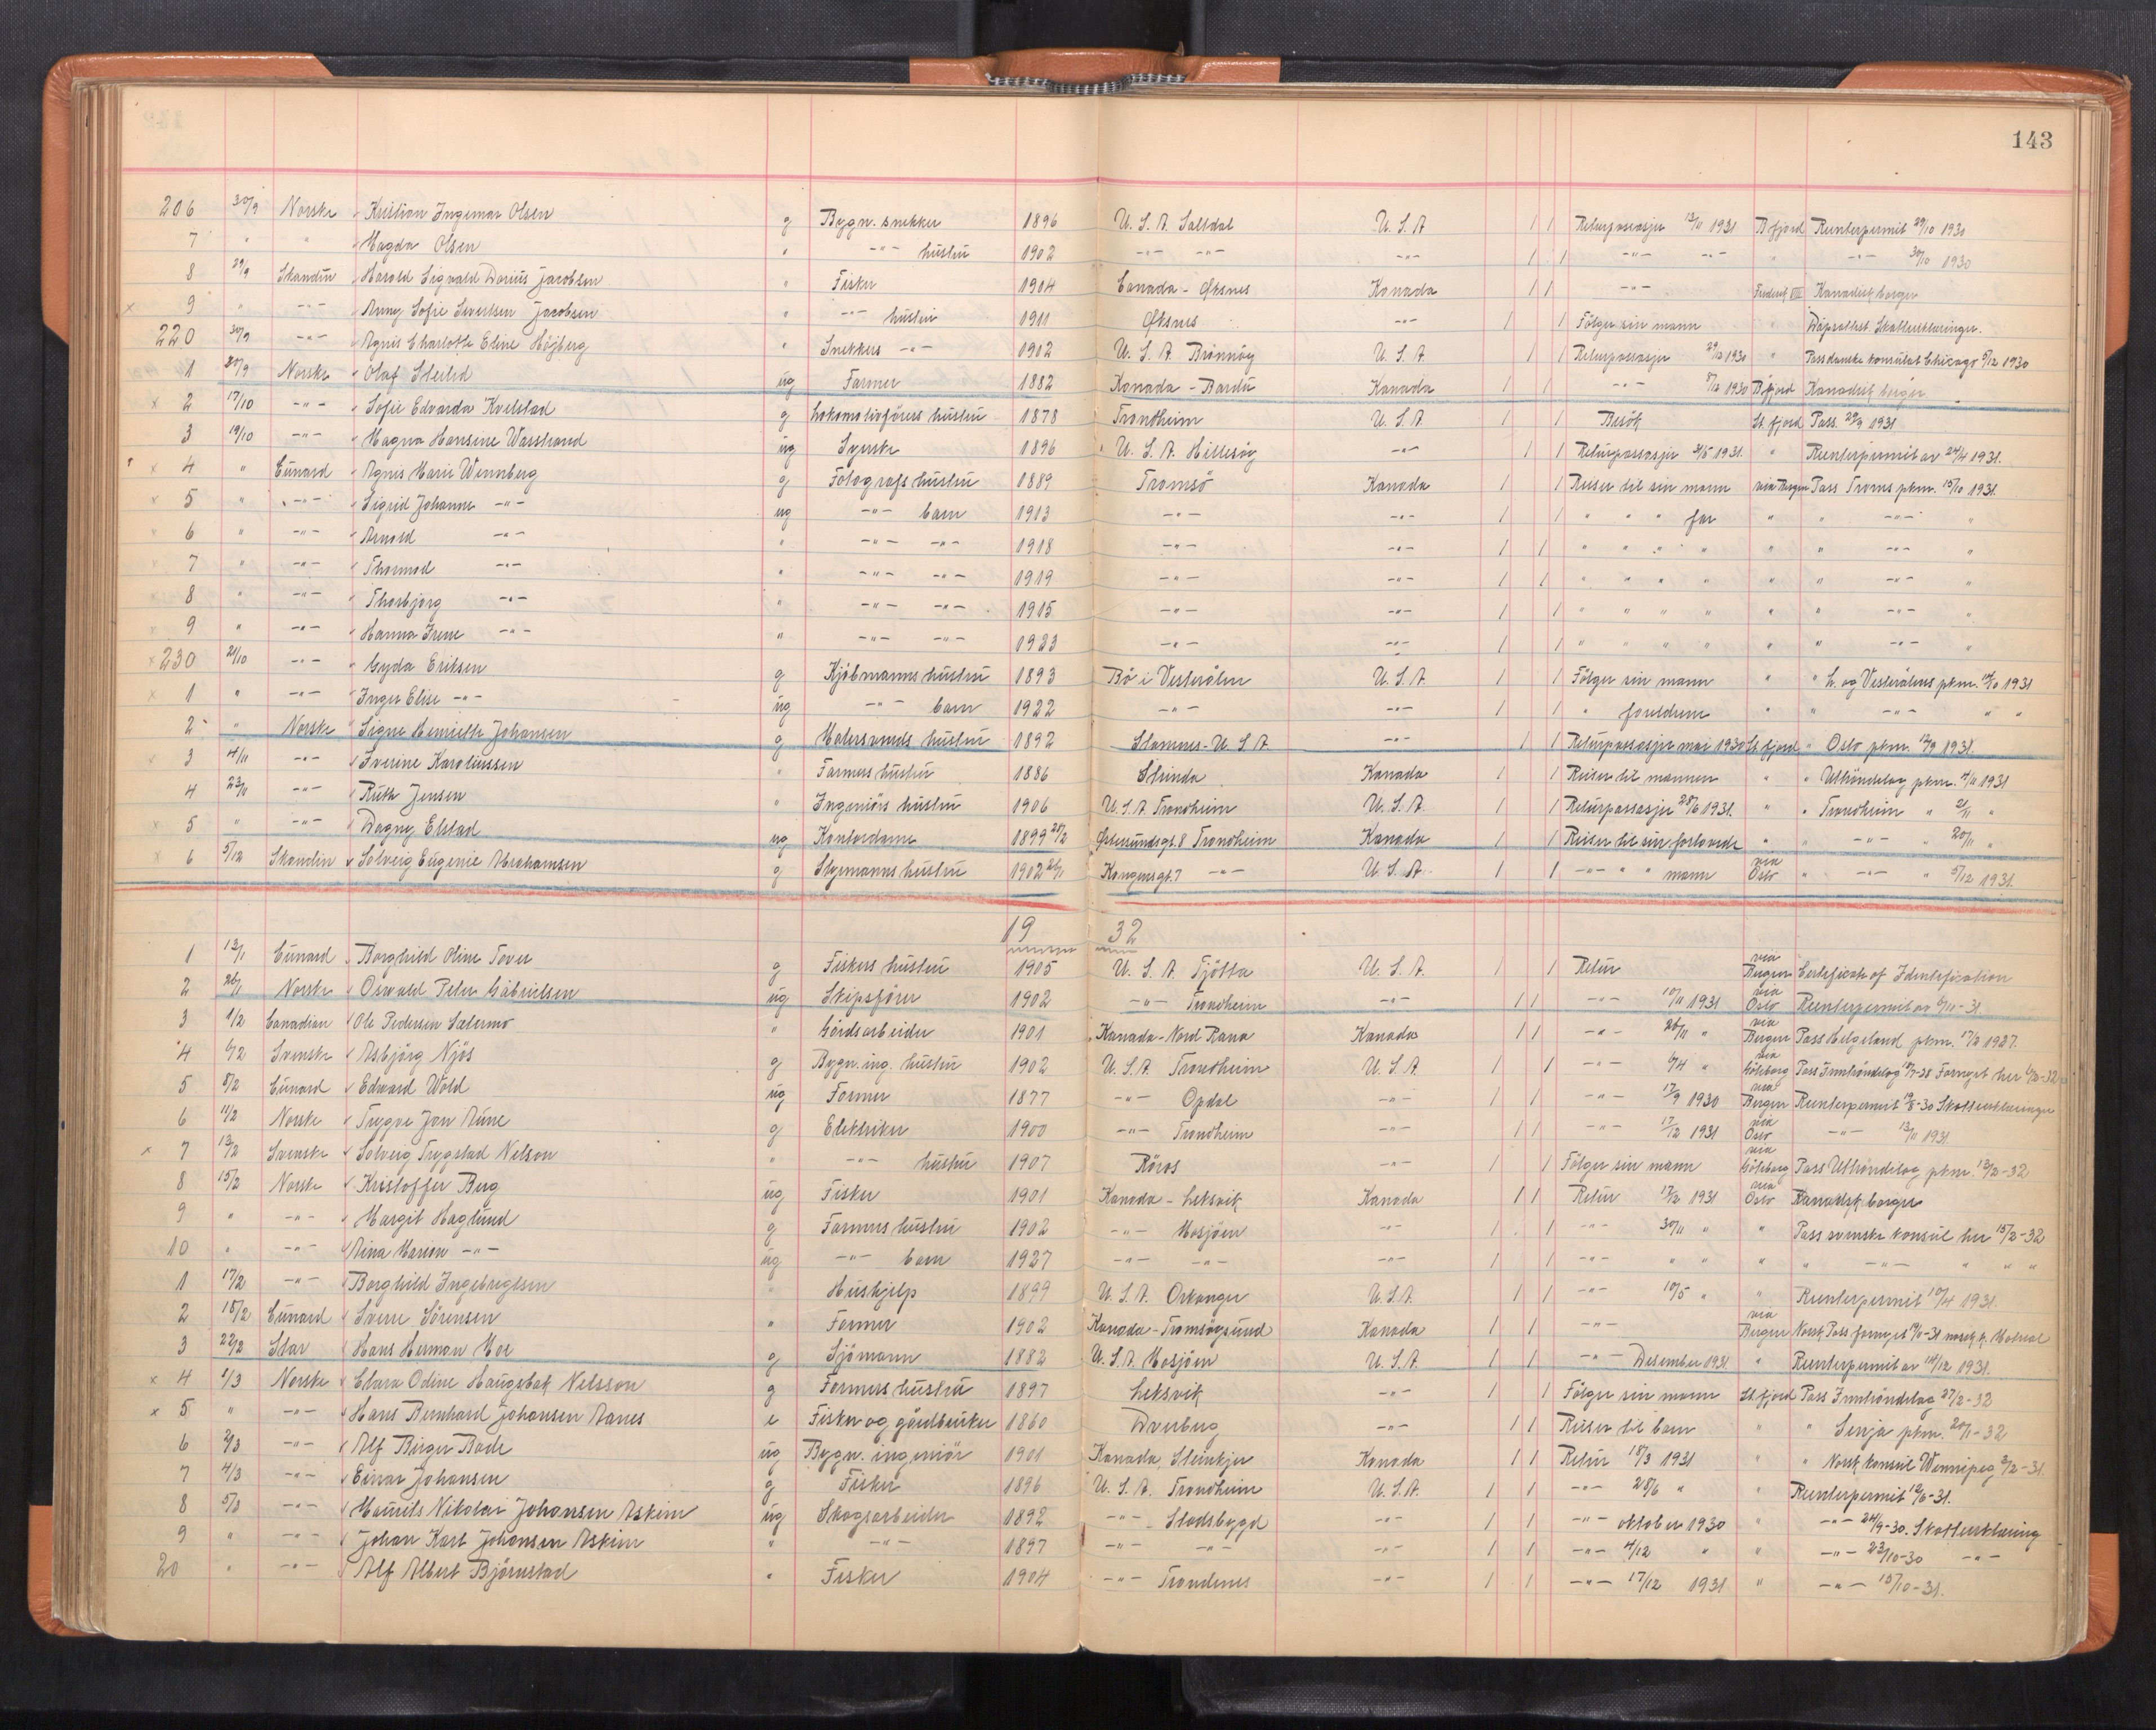 143
206 30/9 Norske Kristian Ingemar Olsen g Bygn. snekker 1896 U.S.A. Saltdal U.S.A 1 1 Returpassasjer 13/11 1931 B.fjord Reenterpermit 29/10 1930
7 " " Magda Olsen " -"- hustru 1902 -"- -"- -"- 1 1 -"- -"- " -"- 30/10 1930
8 29/9 Skandin Harald Sigvald Darius Jacobsen " Fisker 1904 Canada - Øksnes Kanada 1 1 -"- Frederik VIII Kanadisk borger
x 9 " -"- Anny Sofie Sivertsen Jacobsen " -"- hustru 1911 Øksnes -"- 1 1 Følger sin mann " Dåpsattest. Skatteerklæringer.
220 30/9 -"- Agnis Charlotte Eline Höjberg " Snekkers -"- 1902 U.S.A. Brönnöy U.S.A. 1 1 Returpassasjer 29/12 1930 " Pass danske konsulat Chicago 5/12 1930
1 20/9 Norske Olaf Steilid ug Farmer 1882 Kanada - Bardu Kanada 1 1 -"- 8/12 1930 B.fjord Kanadisk borger
x 2 17/10 -"- Sofie Edvarda Kvelstad g Lokomotivförers hustru 1878 Trondheim U.S.A. 1 1 Besök St.fjord Pass. 29/9 1931
3 19/10 -"- Magna Hansine Wasstrand ug Syerske 1896 U.S.A. Hillesöy -"- 1 1 Returpassasjer 31/5 1931. " Reenterpermit av 24/4 1931.
x 4 " Cunard Agnis Marie Wennberg g Fotografs hustru 1889 Tromsö Kanada 1 1 Reiser til sin mann via Bergen Pass Troms pkm. 15/10 1931.
x 5 " -"- Sigrid Johanne -"- ug -"- barn 1913 -"- -"- 1 1 " " " far " " -"- "
x 6 " -"- Arnold -"- " -"- -"- 1918 -"- -"- 1 1 " " " " " " -"- "
x 7 " -"- Thormod -"- " -"- -"- 1919 -"- -"- 1 1 " " " " " " -"- "
x 8 " -"- Thorbjörg -"- " -"- -"- 1915 -"- -"- 1 1 " " " " " " -"- "
x 9 " -"- Hanna Irene -"- " -"- -"- 1923 -"- -"- 1 1 " " " " " " -"- "
x 230 21/10 -"- Gyda Eriksen g Kjöbmanns hustru 1893 Bö i Vesterålen U.S.A. 1 1 Følger sin mann " " L. og Vesterålens pkm. 1931
x 1 " -"- Inger Elise -"- ug -"- barn 1922 -"- -"- 1 1 " foreldrene " " -"- " "
2 " Norske Signe Henriette Johansen g Matersvends hustru 1892 Stamnes - U.S.A. -"- 1 1 Returpassasjer mai 1930 St.fjord " Oslo pkm. 1931.
x 3 4/11 -"- Iverine Karoliussen " Farmers hustru 1886 Strinda Kanada 1 1 Reiser til mannen " " Uttröndelag pkm. 4/11 1931
4 23/11 -"- Ruth Jensen " Ingeniörs hustru 1906 U.S.A. Trondheim U.S.A. 1 1 Returpassasjer 28/6 1931. " " Trondheim " 21/11 "
x 5 " -"- Dagny Elstad ug Kontordame 1899 28/2 Östersundsgt. 8 Trondheim Kanada 1 1 Reiser til sin forlovede " " -"- " 20/11 "
x 6 5/12 Skandin Solveig Eugenie Abrahamsen g Styrmanns hustru 1902 Kongensgt. 7 -"- U.S.A. 1 1 -"- " " mann via Oslo " -"- " 5/12 1931.
19 32
1 12/1 Cunard Borghild Oline Tover g Fiskers hustru 1905 U.S.A. Tjötta U.S.A. 1 1 Retur via Bergen Certificate of Identification
2 26/1 Norske Oswald Peter Gabrielsen ug Skipsförer 1902 -"- Trondheim -"- 1 1 -"- 10/11 1931 via Oslo Reenterpermit av 6/11-31
3 1/2 Canadian Ole Pedersen Salermo " Gårdsarbeider 1901 Kanada - Nord Rana Kanada 1 1 -"- 26/11 " via Bergen Pass Helgeland pkm. 17/2 1927.
4 6/2 Svenske Asbjörg Njös g Bygn. ing. hustru 1902 U.S.A. Trondheim U.S.A. 1 1 -"- 6/4 " via Göteborg Pass Inntröndelag Fornyet her
5 8/2 Cunard Edvard Wold ug Farmer 1877 -"- Opdal -"- 1 1 -"- 17/9 1930 via Bergen Reenterpermit 19/8-30 Skatteerklæringer
6 11/2 Norske Trygve Jon Aune g Elektriker 1900 -"- Trondheim -"- 1 1 -"- 17/12 1931 via Oslo -"- 13/11 1931.
x 7 13/2 Svenske Solveig Trygstad Nelson " -"- hustru 1907 Röros -"- 1 1 Følger sin mann via Göteborg Pass Uttröndelag pkm. 12/2-32
8 15/2 Norske Kristoffer Berg ug Fisker 1901 Kanada - Leksvik Kanada 1 1 Retur 17/2 1931 via Oslo Kanadisk borger
9 " -"- Margit Haglund g Farmers hustru 1902 -"- Mosjöen -"- 1 1 -"- 30/11 " " Pass svenske konsul her 15/2-32
10 " -"- Nina Marion -"- ug -"- barn 1927 -"- -"- -"- 1 1 -"- " " " " -"- " " "
1 17/2 -"- Borghild Ingebrigtsen " Hushjelp 1899 U.S.A. Orkanger U.S.A. 1 1 -"- 10/5 " " Reenterpermit 10/4 1931.
2 18/2 Cunard Sverre Sörensen " Farmer 1902 Kanada - Tromsöysund Kanada 1 1 -"- via Bergen Norsk Pass fornyet
3 22/2 Star Hans Herman Moe g Sjömann 1882 U.S.A. Mosjöen U.S.A. 1 1 -"- Desember 1931. " Reenterpermit av 14/12 1931.
x 4 1/3 Norske Clara Odine Haugsbak Nelsson g Farmers hustru 1897 Leksvik -"- 1 1 Følger sin mann St.fjord Pass Inntröndelag 27/2-32
x 5 " -"- Hans Bernhard Johansen Aanes e Fisker og gårdbruker 1860 Dverberg -"- 1 1 Reiser til barn " " Senja pkm. 20/1-32
6 2/3 -"- Alf Birger Bade ug Bygn. ingeniör 1901 Kanada, Steinkjer Kanada 1 1 Retur 18/3 1931 " " Norsk konsul Winnipeg 2/2-31.
7 4/3 -"- Einar Johansen g Fisker 1896 U.S.A. Trondheim U.S.A. 1 1 -"- 28/6 " " Reenterpermit 12/6-31.
8 5/3 -"- Maurits Nikolai Johansen Askim ug Skogsarbeider 1892 -"- Stadsbygd -"- 1 1 -"- oktober 1930 " -"- 24/9-30. Skatteerklæring
9 " -"- Johan Karl Johansen Askim " -"- 1897 -"- -"- -"- 1 1 -"- 4/12 " " -"- 23/10-30 -"-
20 " -"- Alf Albert Björnstad " Fisker 1904 -"- Trondenes -"- 1 1 -"- 17/12 1931 " -"- 15/10-31.